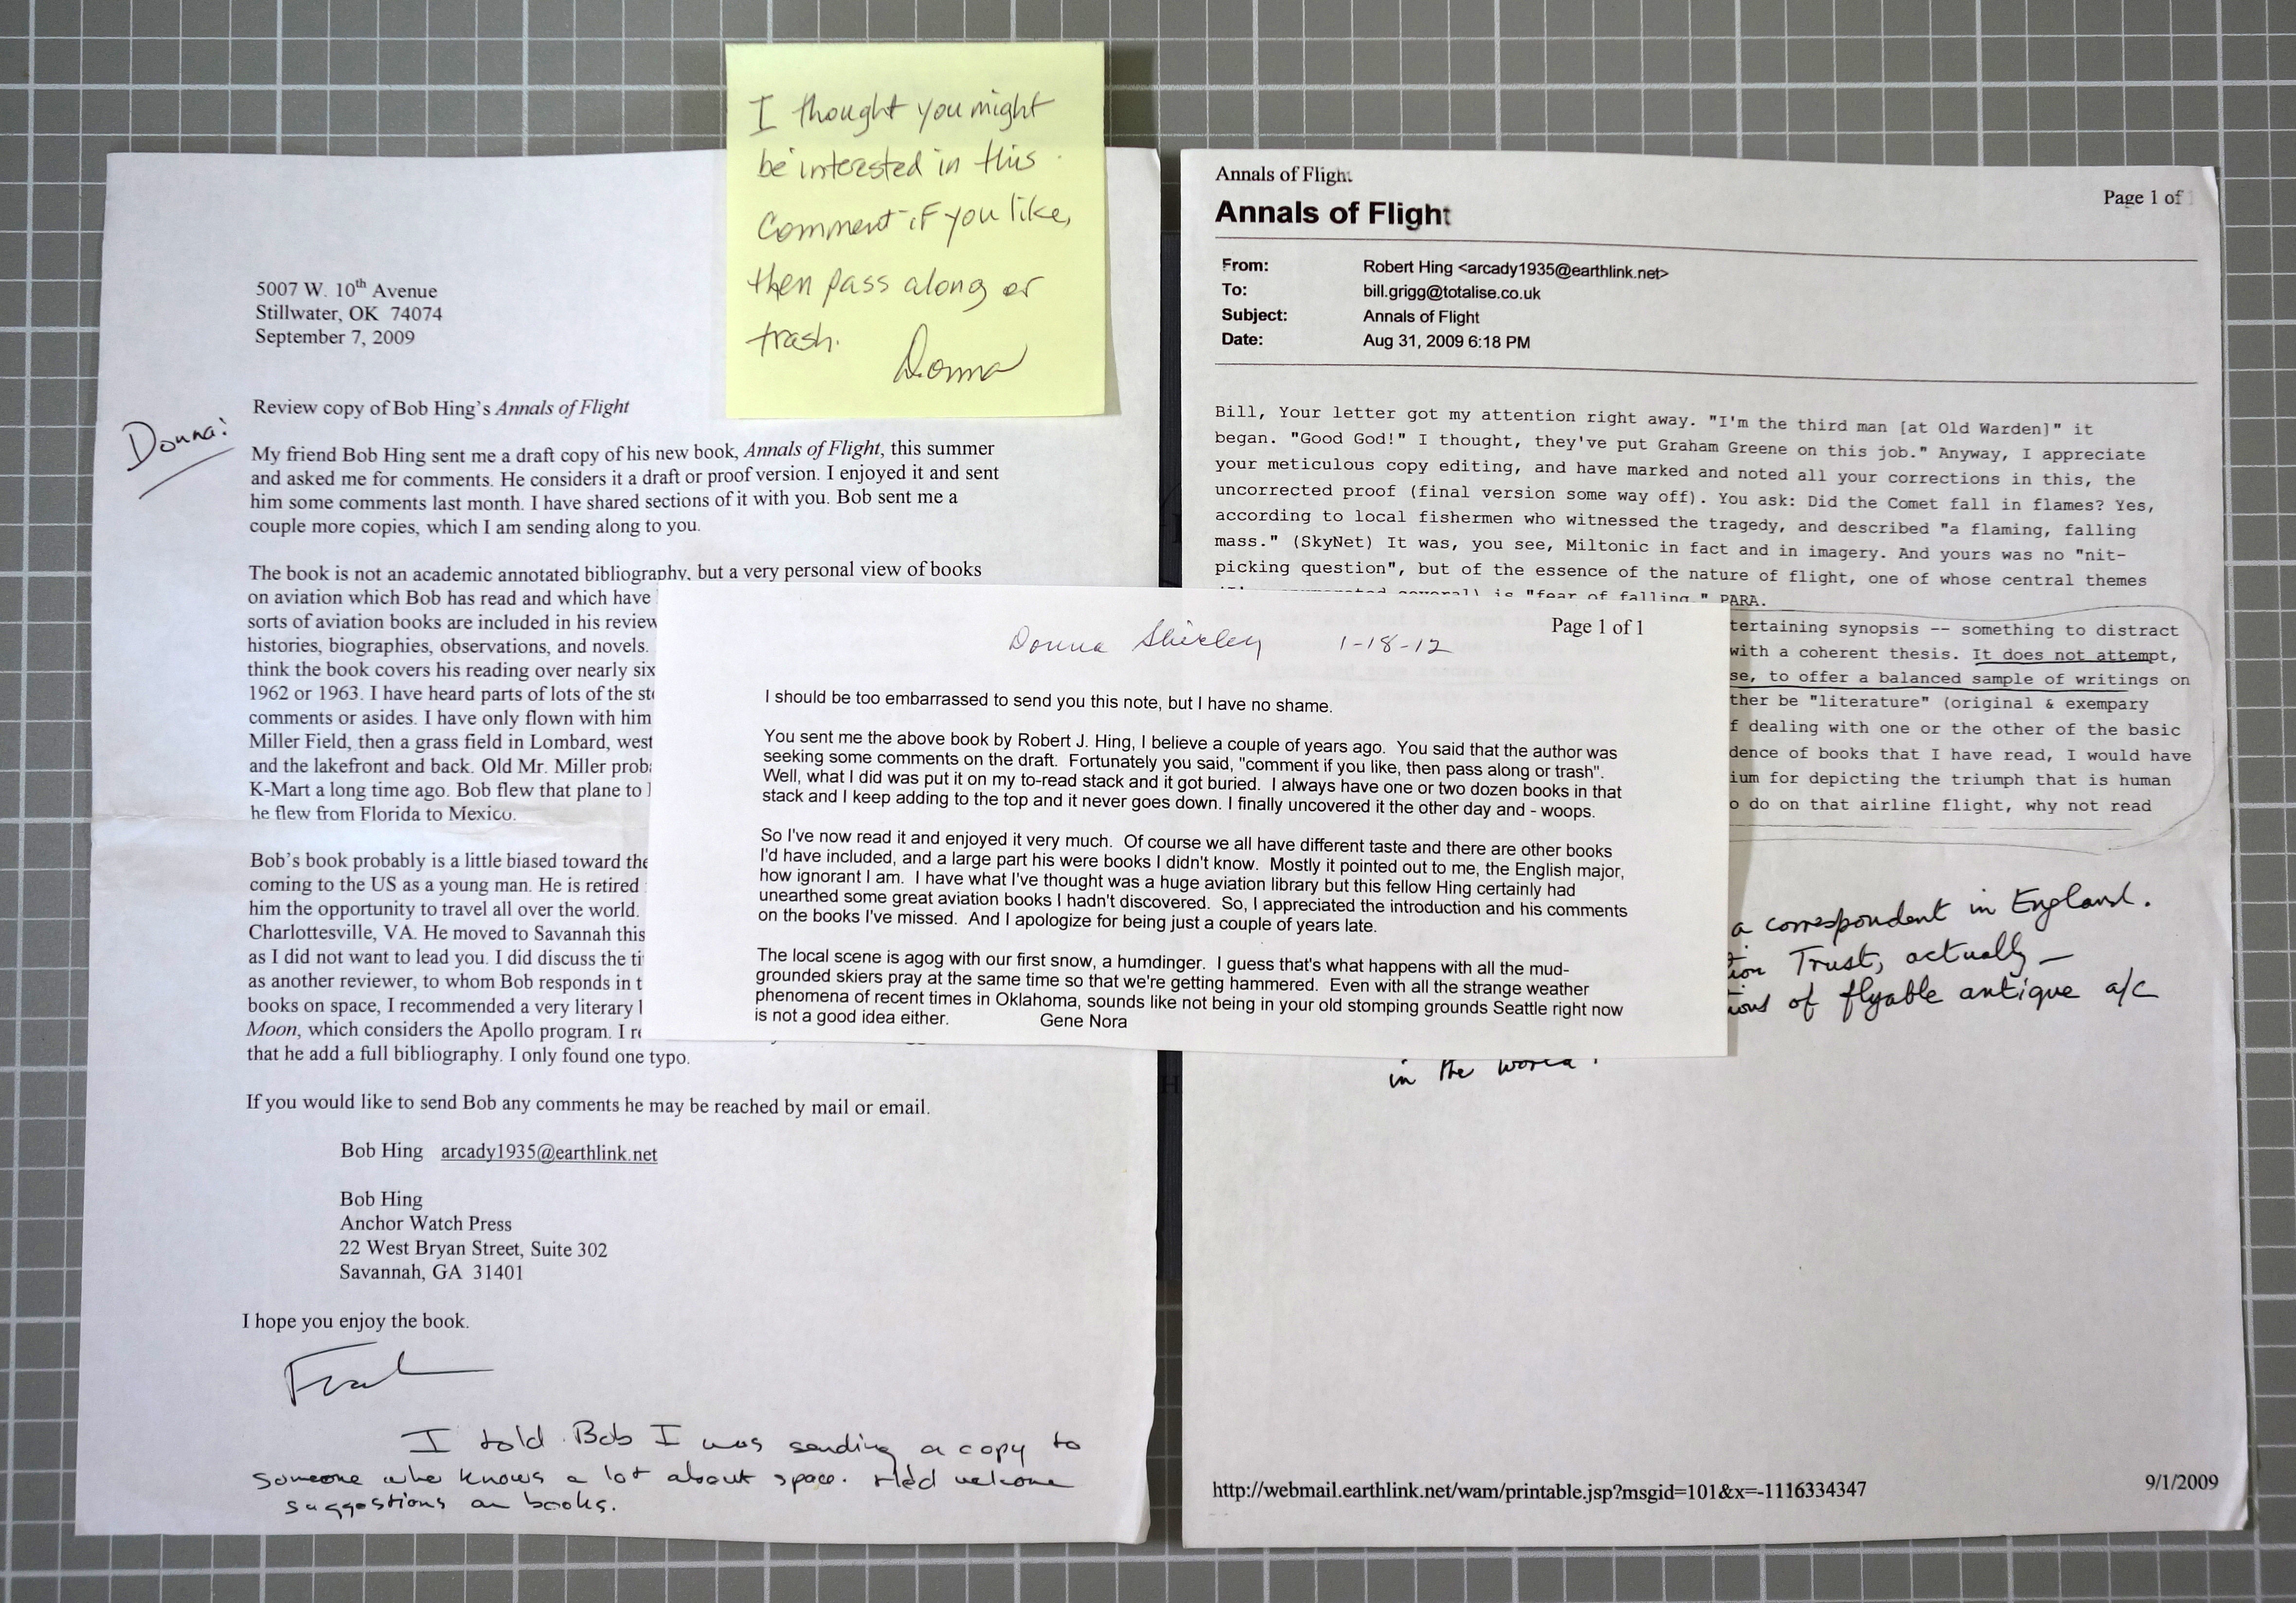 I thought you might
be interested in this.
Comment if you like,
then pass along or
trash.
Donna
5007 W. 10th Avenue
Stillwater, OK 74074
September 7, 2009
Review copy of Bob Hing's Annals of Flight
Donna:
My friend Bob Hing sent me a draft copy of his new book, Annals of Flight, this summer
and asked me for comments. He considers it a draft or proof version. I enjoyed it and sent
him some comments last month. I have shared sections of it with you. Bob sent me a
couple more copies, which I am sending along to you.
The book is not an academic annotated bibliography, but a very personal view of books
on aviation which Bob has read and which have
sorts of aviation books are included in his review
histories, biographies, observations, and novels.
think the book covers his reading over nearly six
1962 or 1963. I have heard parts of lots of the
comments or asides. I have only flown with him
Miller Field, then a grass field in Lombard, west
and the lakefront and back. Old Mr. Miller
K-Mart a long time ago. Bob flew that plane to
he flew from Florida to Mexico.
Bob's book probably is a little biased toward the
coming to the US as a young man. He is retired
him the opportunity to travel all over the world.
Charlottesville, VA. He moved to Savannah this
as I did not want to lead you. I did discuss the
as another reviewer, to whom Bob responds in
books on space, I recommended a very literary
Moon, which considers the Apollo program. I
that he add a full bibliography. I only found one typo.
If you would like to send Bob any comments he may be reached by mail or email.
Bob Hing arcady1935@earthlink.net
Bob Hing
Anchor Watch Press
22 West Bryan Street, Suite 302
Savannah, GA 31401
I hope you enjoy the book.
I told Bob I was sending a copy to
someone who knows a lot about space. He'd welcome
suggestions on books.
Donna Shirley 1-18-12
Page 1 of 1
I should be too embarrassed to send you this note, but I have no shame.
You sent me the above book by Robert J. Hing, I believe a couple of years ago. You said that the author was
seeking some comments on the draft. Fortunately you said, "comment if you like, then pass along or trash".
Well, what I did was put it on my to-read stack and it got buried. I always have one or two dozen books in that
stack and I keep adding to the top and it never goes down. I finally uncovered it the other day and - woops.
So I've now read it and enjoyed it very much. Of course we all have different taste and there are other books
I'd have included, and a large part his were books I didn't know. Mostly it pointed out to me, the English major,
how ignorant I am. I have what I've thought was a huge aviation library but this fellow Hing certainly had
unearthed some great aviation books I hadn't discovered. So, I appreciated the introduction and his comments
on the books I've missed. And I apologize for being just a couple of years late.
The local scene is agog with our first snow, a humdinger. I guess that's what happens with all the mud-
grounded skiers pray at the same time so that we're getting hammered. Even with all the strange weather
phenomena of recent times in Oklahoma, sounds like not being in your old stomping grounds Seattle right now
is not a good idea either. Gene Nora
Annals of Flight
Page 1 of 1
Annals of Flight
From: Robert Hing <arcady1935@earthlink.net>
To: bill.grigg@totalise.co.uk
Subject: Annals of Flight
Date: Aug 31, 2009 6:18 PM
Bill, Your letter got my attention right away. "I'm the third man [at Old Warden]" it
began. "Good God!" I thought, they've put Graham Greene on this job." Anyway, I appreciate
your meticulous copy editing, and have marked and noted all your corrections in this, the
uncorrected proof (final version some way off). You ask: Did the Comet fall in flames? Yes,
according to local fishermen who witnessed the tragedy, and described "a flaming, falling
mass." (SkyNet) It was, you see, Miltonic in fact and in imagery. And yours was no "nit-
picking question", but of the essence of the nature of flight, one of whose central themes
is "fear of falling." PARA.
tertaining synopsis -- something to distract
with a coherent thesis. It does not attempt,
se, to offer a balanced sample of writings on
ther be "literature" (original & exempary
f dealing with one or the other of the basic
dence of books that I have read, I would have
ium for depicting the triumph that is human
o do on that airline flight, why not read
a correspondent in England.
tion Trust, actually —
ions of flyable antique a/c
in the world!
http://webmail.earthlink.net/wam/printable.jsp?msgid=101&x=-1116334347
9/1/2009